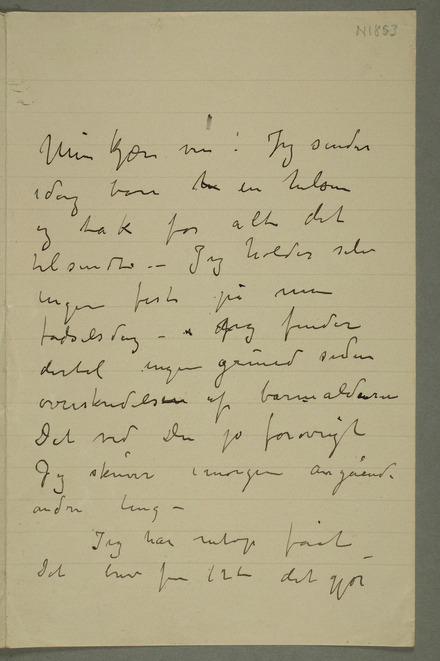 N1853
Min kjære ven! Jeg sender
idag bare en hilsen
og tak for alt det
tilsendte – Jeg holder selv
ingen fest på min
fødselsdag – Jeg finder
dertil ingen grund siden
overskridelsen af barnealderen
Det ved Du jo forøvrigt
Jeg skriver imorgen angående
andre ting –
Jeg har netop fået
brev fra det gjør